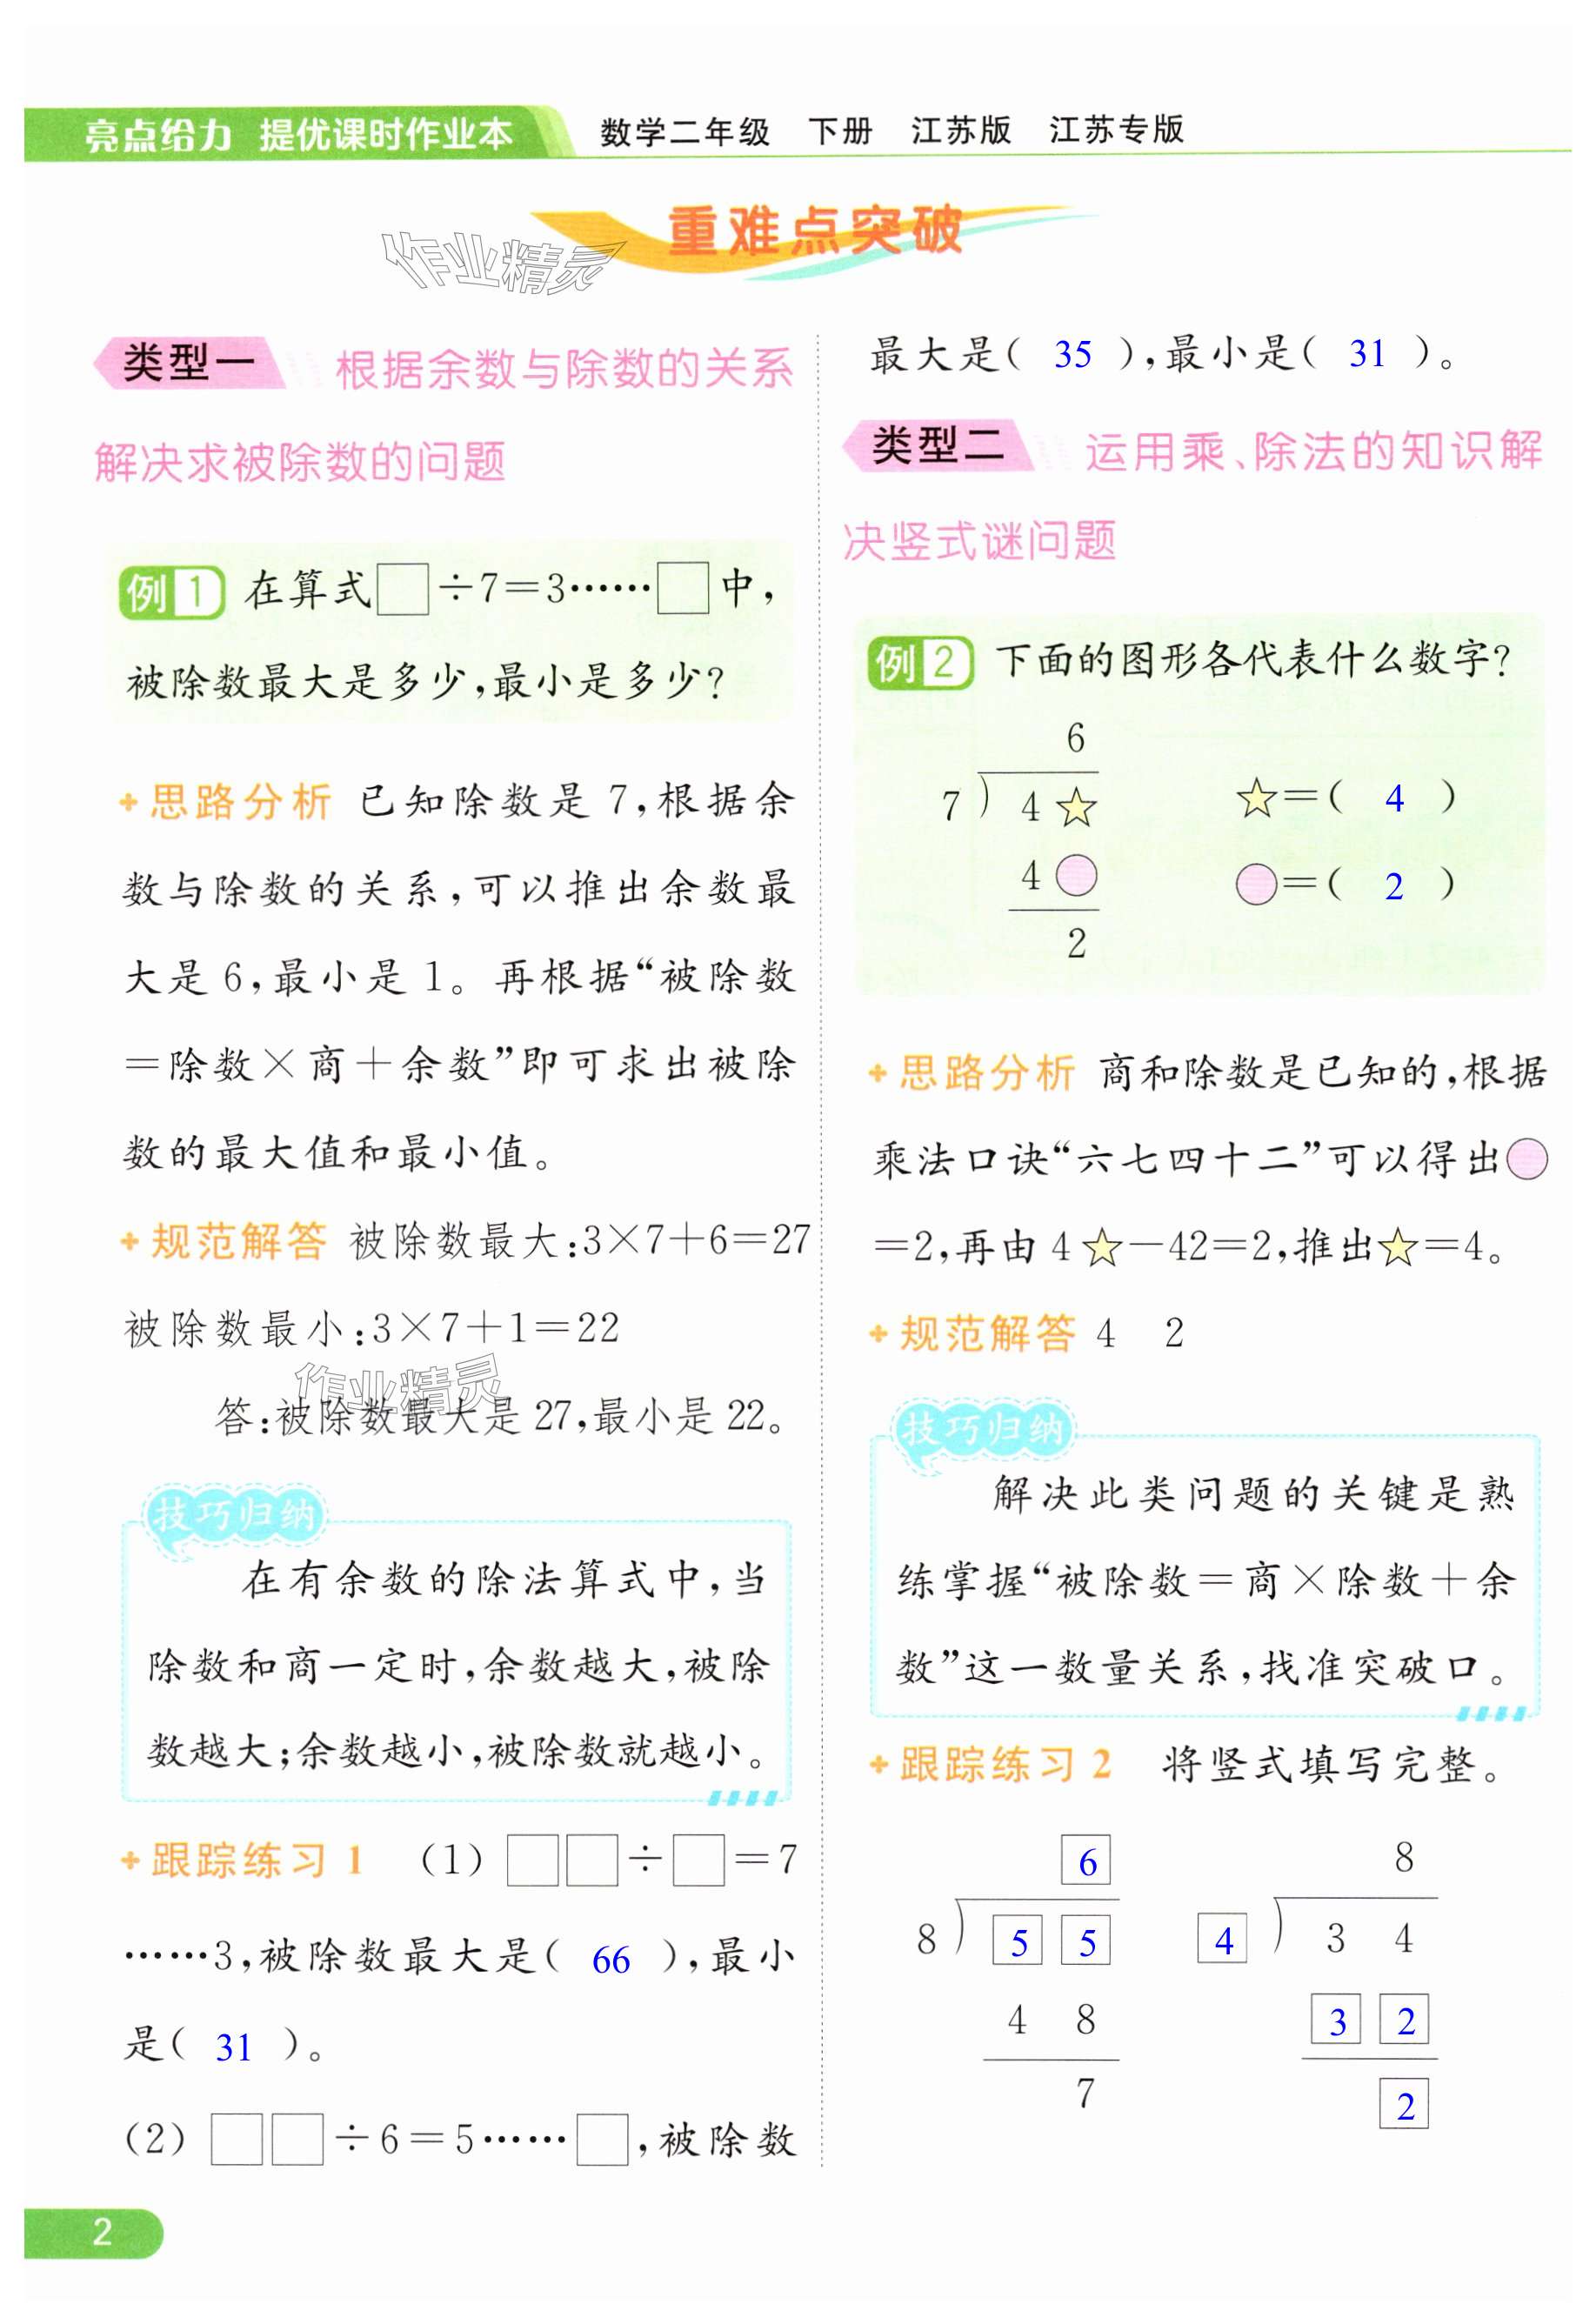 亮点给力 提优课时作业本 数学二年级 下册 江苏版 江苏专版
重难点突破
作业精灵
类型一 根据余数与除数的关系
解决求被除数的问题
例1 在算式□÷7=3……□中,
被除数最大是多少,最小是多少?
思路分析 已知除数是 7,根据余
数与除数的关系,可以推出余数最
大是 6,最小是 1。再根据“被除数
=除数×商+余数”即可求出被除
数的最大值和最小值。
规范解答 被除数最大:3×7+6=27
被除数最小:3×7+1=22
作业精灵
答:被除数最大是 27,最小是 22。
技巧归纳
在有余数的除法算式中,当
除数和商一定时,余数越大,被除
数越大;余数越小,被除数就越小。
跟踪练习 1 (1) □□÷□=7
……3,被除数最大是( 66 ),最小
是( 31 )。
(2) □□÷6=5……□,被除数
2
最大是( 35 ),最小是( 31 )。
类型二 运用乘、除法的知识解
决竖式谜问题
例2 下面的图形各代表什么数字?
6
7 ) 4 ☆ ☆=( 4 )
4 ○ ○=( 2 )
2
思路分析 商和除数是已知的,根据
乘法口诀“六七四十二”可以得出○
=2,再由 4☆-42=2,推出☆=4。
规范解答 4 2
技巧归纳
解决此类问题的关键是熟
练掌握“被除数=商×除数+余
数”这一数量关系,找准突破口。
跟踪练习 2 将竖式填写完整。
6 8
8 ) 5 5 4 ) 3 4
4 8 3 2
7 2